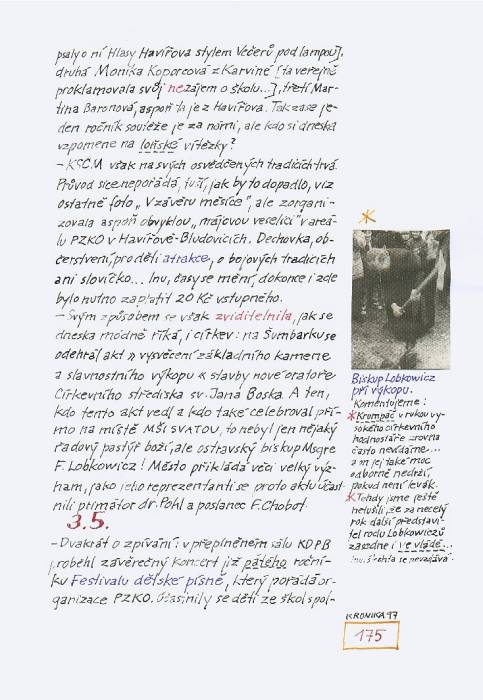 psaly o ní Hlasy Havířova stylem Večerů pod lampou],
druhá Monika Koporcová z Karviné [ta veřejně
proklamovala svůj nezájem o školu...], třetí Mar-
tina Baronová, aspoň ta je z Havířova. Tak zase je-
den ročník soutěže je za námi, ale kdo si dneska
vzpomene na loňské vítězky?
– KSČM však na svých osvědčených tradicích trvá.
Průvod sice nepořádá, tuší, jak by to dopadlo, viz
ostatně foto „V závěru měsíce", ale zorgani-
zovala aspoň obvyklou „májovou veselici" v areá-
lu PZKO v Havířově-Bludovicích. Dechovka, ob-
čerstvení, pro děti atrakce, o bojových tradicích
ani slovíčko... Inu, časy se mění, dokonce i zde
bylo nutno zaplatit 20 Kč vstupného.
– Svým způsobem se však zviditelnila, jak se
dneska módně říká, i církev: na Šumbarku se
odehrál akt » vysvěcení základního kamene
a slavnostního výkopu « stavby nové oratoře
Církevního střediska sv. Jana Boska. A ten,
kdo tento akt vedl a kdo také celebroval pří-
mo na místě MŠI SVATOU, to nebyl jen nějaký
řadový pastýř boží, ale ostravský biskup Msgre
F. Lobkowicz! Město přikládá věci velký výz-
nam, jako jeho reprezentanti se proto aktu účast-
nili primátor dr. Pohl a poslanec F. Chobot.
3.5.
– Dvakrát o zpívání: v přeplněném sálu KDPB
proběhl závěrečný koncert již pátého roční-
ku Festivalu dětské písně, který pořádá or-
ganizace PZKO. Účastnily se děti ze škol spol-
*
Biskup Lobkowicz
při výkopu.
Komentujeme:
* Krompáč v rukou vy-
sokého církevního
hodnostáře zrovna
často nevídáme...
a on jej také moc
odborně nedrží,
pokud není levák.
* Tehdy jsme ještě
netušili, že za necelý
rok další představi-
tel rodu Lobkowiczů
zasedne i ve vládě...
Inu, šlechta se nevzdává.
KRONIKA 97
175